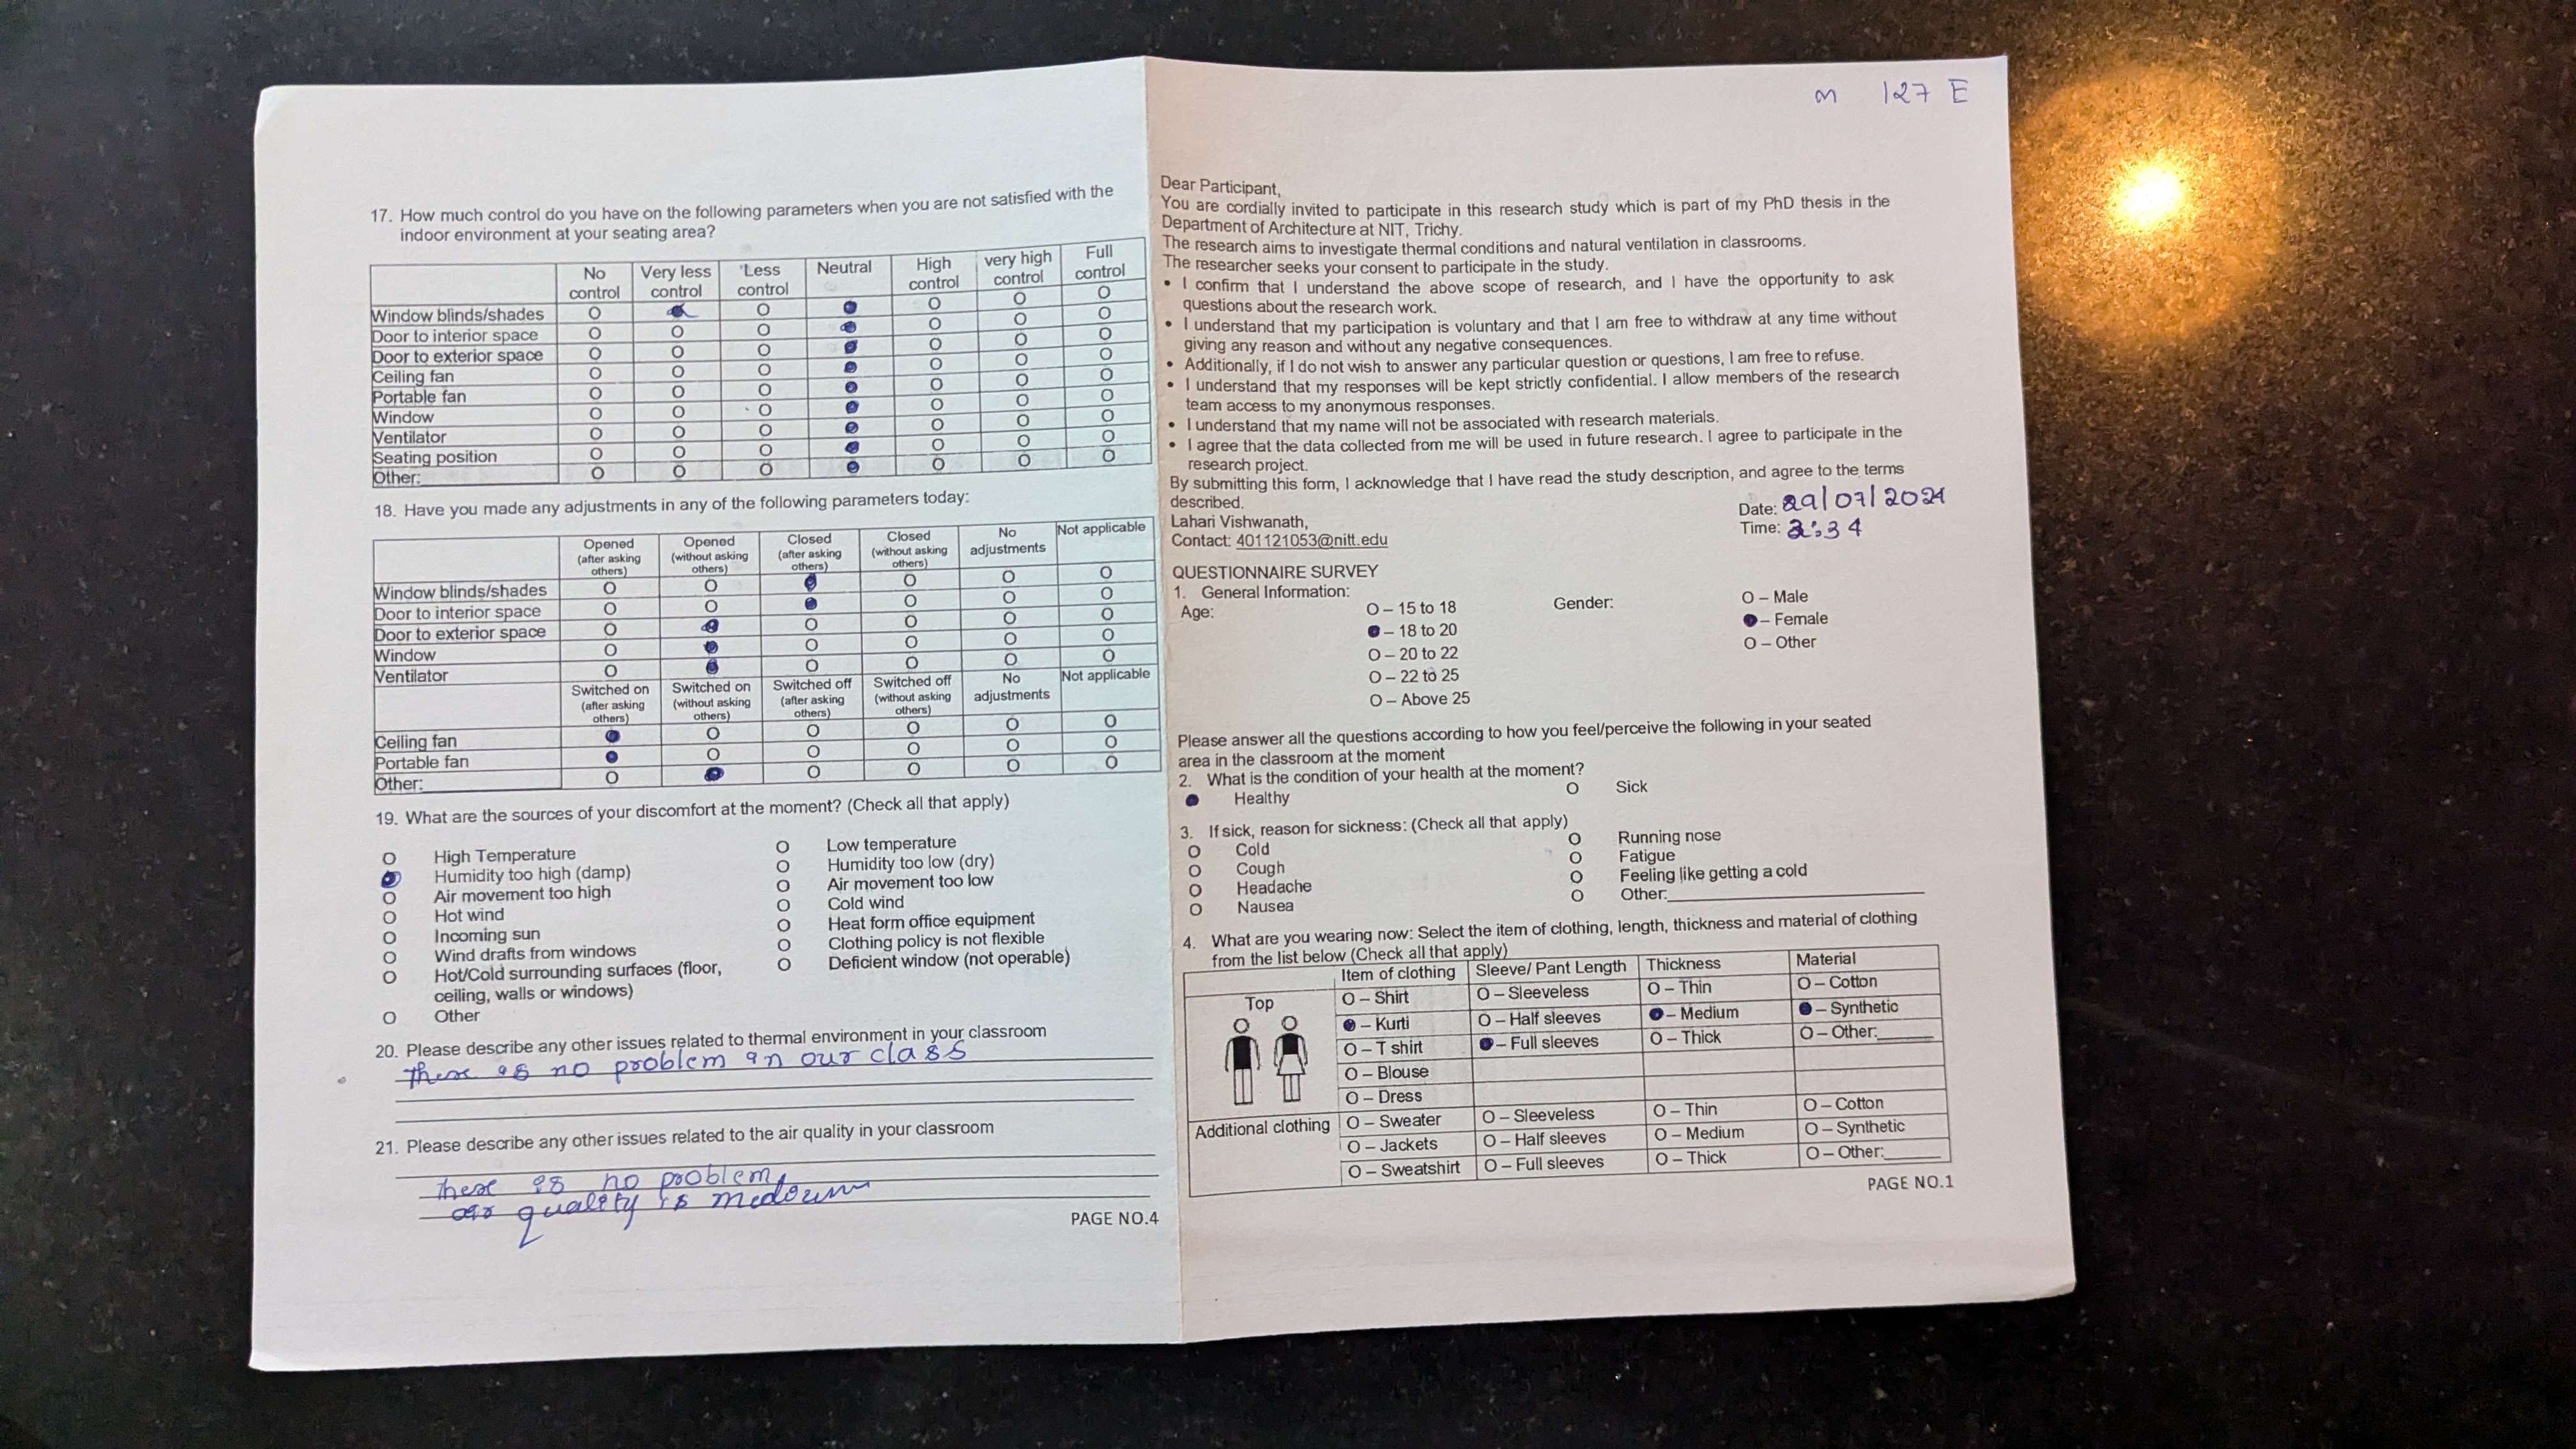 17. How much control do you have on the following parameters when you are not satisfied with the
indoor environment at your seating area?
No control Very less control Less control Neutral High control very high control Full control
Window blinds/shades O O O O O O
Door to interior space O O O O O O
Door to exterior space O O O O O O
Ceiling fan O O O O O O
Portable fan O O O O O O
Window O O O O O O
Ventilator O O O O O O
Seating position O O O O O O
Other: O O O O O O
18. Have you made any adjustments in any of the following parameters today:
Opened (after asking others) Opened (without asking others) Closed (after asking others) Closed (without asking others) No adjustments Not applicable
Window blinds/shades O O O O O
Door to interior space O O O O O
Door to exterior space O O O O O
Window O O O O O
Ventilator O O O O O
Switched on (after asking others) Switched on (without asking others) Switched off (after asking others) Switched off (without asking others) No adjustments Not applicable
Ceiling fan O O O O O
Portable fan O O O O O
Other: O O O O O
19. What are the sources of your discomfort at the moment? (Check all that apply)
O High Temperature O Low temperature
Humidity too high (damp) O Humidity too low (dry)
O Air movement too high O Air movement too low
O Hot wind O Cold wind
O Incoming sun O Heat form office equipment
O Wind drafts from windows O Clothing policy is not flexible
O Hot/Cold surrounding surfaces (floor, O Deficient window (not operable)
ceiling, walls or windows)
O Other
20. Please describe any other issues related to thermal environment in your classroom
there is no problem in our class
21. Please describe any other issues related to the air quality in your classroom
there is no problem,
air quality is medoum
PAGE NO.4
m 127 E
Dear Participant,
You are cordially invited to participate in this research study which is part of my PhD thesis in the
Department of Architecture at NIT, Trichy.
The research aims to investigate thermal conditions and natural ventilation in classrooms.
The researcher seeks your consent to participate in the study.
• I confirm that I understand the above scope of research, and I have the opportunity to ask
questions about the research work.
• I understand that my participation is voluntary and that I am free to withdraw at any time without
giving any reason and without any negative consequences.
• Additionally, if I do not wish to answer any particular question or questions, I am free to refuse.
• I understand that my responses will be kept strictly confidential. I allow members of the research
team access to my anonymous responses.
• I understand that my name will not be associated with research materials.
• I agree that the data collected from me will be used in future research. I agree to participate in the
research project.
By submitting this form, I acknowledge that I have read the study description, and agree to the terms
described.
Date: 29/07/2024
Lahari Vishwanath,
Time: 2:34
Contact: 401121053@nitt.edu
QUESTIONNAIRE SURVEY
1. General Information:
Age: O – 15 to 18 Gender: O – Male
– 18 to 20 – Female
O – 20 to 22 O – Other
O – 22 to 25
O – Above 25
Please answer all the questions according to how you feel/perceive the following in your seated
area in the classroom at the moment
2. What is the condition of your health at the moment?
Healthy O Sick
3. If sick, reason for sickness: (Check all that apply)
O Cold O Running nose
O Cough O Fatigue
O Headache O Feeling like getting a cold
O Nausea O Other:
4. What are you wearing now: Select the item of clothing, length, thickness and material of clothing
from the list below (Check all that apply)
Item of clothing Sleeve/ Pant Length Thickness Material
Top O – Shirt O – Sleeveless O – Thin O – Cotton
– Kurti O – Half sleeves – Medium – Synthetic
O – T shirt – Full sleeves O – Thick O – Other:
O – Blouse
O – Dress
Additional clothing O – Sweater O – Sleeveless O – Thin O – Cotton
O – Jackets O – Half sleeves O – Medium O – Synthetic
O – Sweatshirt O – Full sleeves O – Thick O – Other:
PAGE NO.1